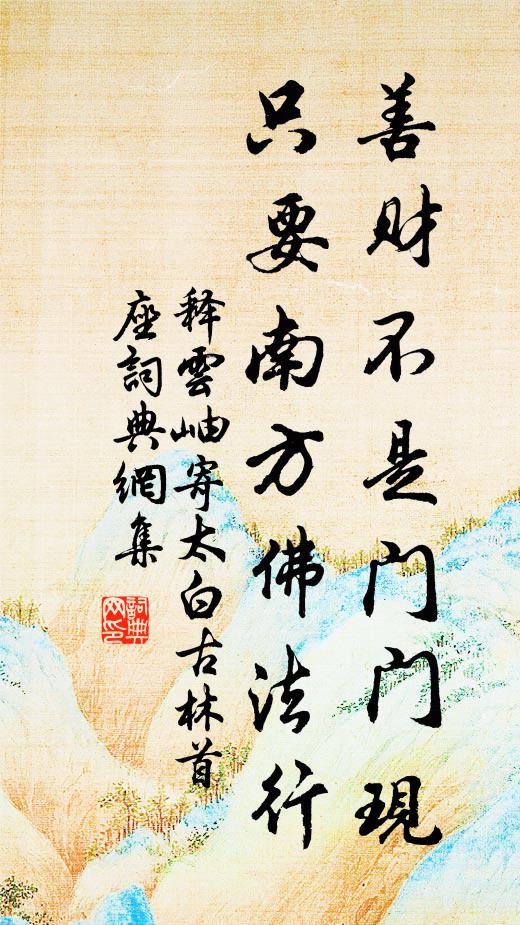 善财不是门门現
只要南方佛法行
释雲岫寄太白古林首
座詞典網集
詞典
网印